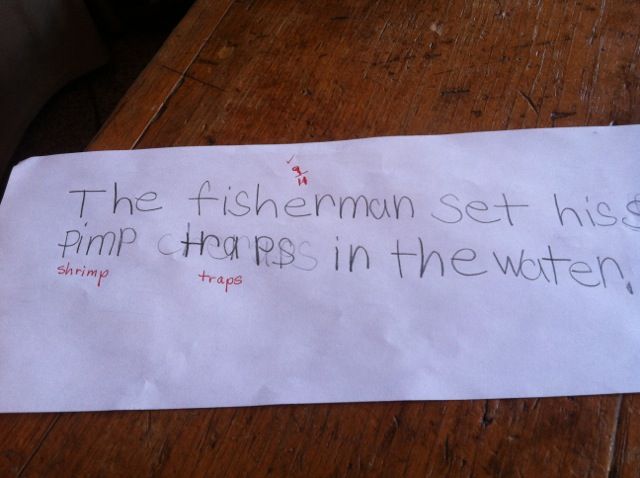 9/14
The fisherman set his
pimp traps in the water.
shrimp traps